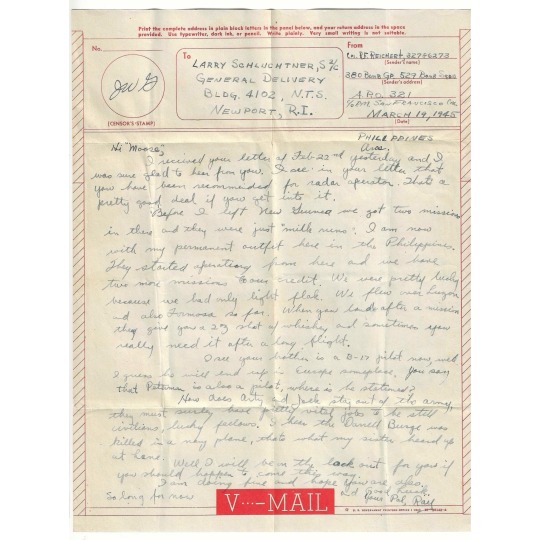 Print the complete address in plain block letters in the panel below, and your return address in the space
provided. Use typewriter, dark ink, or pencil. Write plainly. Very small writing is not suitable.
No.
JWG
(CENSOR'S STAMP)
To
LARRY SCHLUCHTNER, S 2/C
GENERAL DELIVERY
BLDG. 4102, N.T.S.
NEWPORT, R.I.
From
R.F. REICHERT 32796273
(Sender's name)
380 BOMB GP. 529 BOMB SQDN
(Sender's address)
A.P.O. 321
% P.M. SAN FRANCISCO CAL
MARCH 19, 1945
(Date)
PHILIPPINES
Area.
Hi "Moose",
I received your letter of Feb 22nd yesterday and I
was sure glad to hear from you. I see in your letter that
you have been recommended for radar operator. Thats a
pretty good deal if you get into it.
Before I left New Guinea we got two missions
in there and they were just "milk runs". I am now
with my permanent outfit here in the Philippines.
They started operations from here and we have
two more missions to our credit. We were pretty lucky
because we had only light flak. We flew over Luzon
and also Formosa so far. When you land after a mission
they give you a 2 shot of whiskey and sometimes you
really need it after a long flight.
I see your brother is a B-17 pilot now, well
I guess he will end up in Europe someplace. You say
that Peterman is also a pilot, where is he stationed?
How does Arty and Jack stay out of the army,
they must surely have pretty vital jobs to be still
civilians, lucky fellows. I hear the Darrell Burge was
killed in a navy plane, thats what my sister heard up
at home. Well I will be on the look out for you if
you should happen to come this way.
I am doing fine and hope you are also.
So long for now and good luck
Your Pal, Ray
V···—MAIL